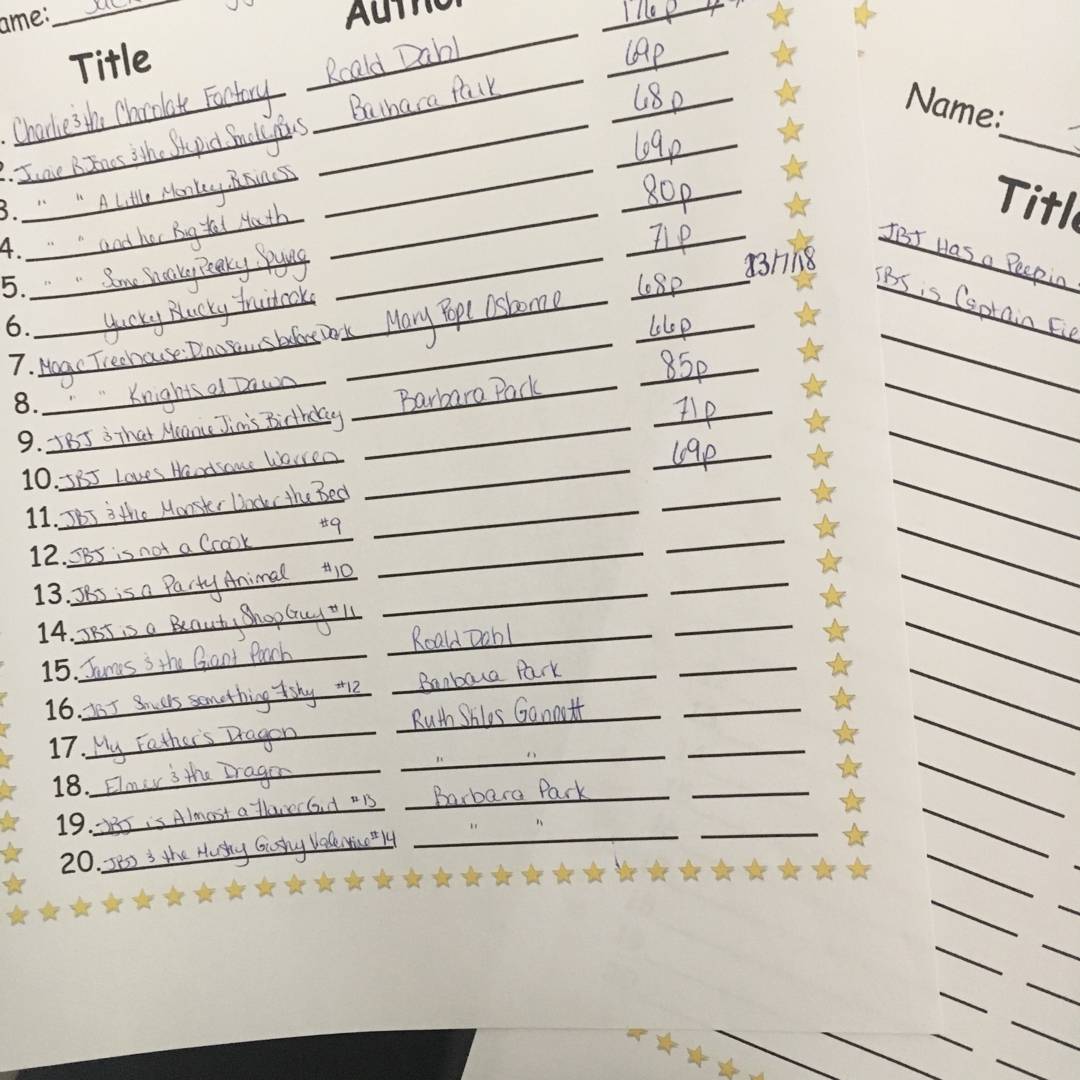 Name:
Title Author
1. Charlie & the Chocolate Factory Roald Dahl 176p
2. Junie B. Jones & the Stupid Smelly Bus Barbara Park 69p
3. " " A Little Monkey Business 68p
4. " " and her Big Fat Mouth 69p
5. " " Some Sneaky Peaky Spying 80p
6. Yucky Blucky Fruitcake 71p
7. Magic Treehouse: Dinosaurs before Dark Mary Pope Osborne 68p 23/7/18
8. " " Knights at Dawn 66p
9. JBJ & that Meanie Jim's Birthday Barbara Park 85p
10. JBJ Loves Handsome Warren 71p
11. JBJ & the Monster Under the Bed 69p
12. JBJ is not a Crook #9
13. JBJ is a Party Animal #10
14. JBJ is a Beauty Shop Guy #11
15. James & the Giant Peach Roald Dahl
16. JBJ Smells something Fishy #12 Barbara Park
17. My Father's Dragon Ruth Stiles Gannett
18. Elmer & the Dragon " "
19. JBJ is Almost a Flower Girl #13 Barbara Park
20. JBJ & the Mushy Gushy Valentine #14 " "
Name:
Title
JBJ Has a Peep in
JBJ is Captain Fie